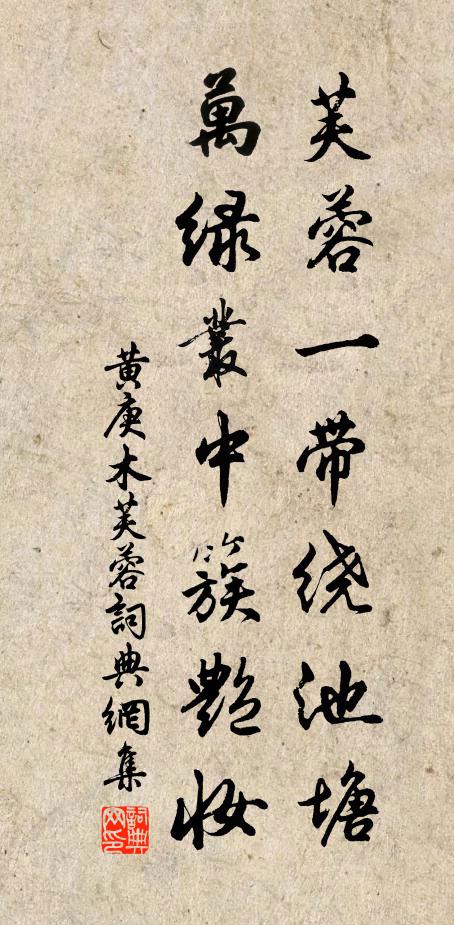 芙蓉一带绕池塘
萬绿叢中簇艶妆
黄庚木芙蓉詞典網集
詞典网印